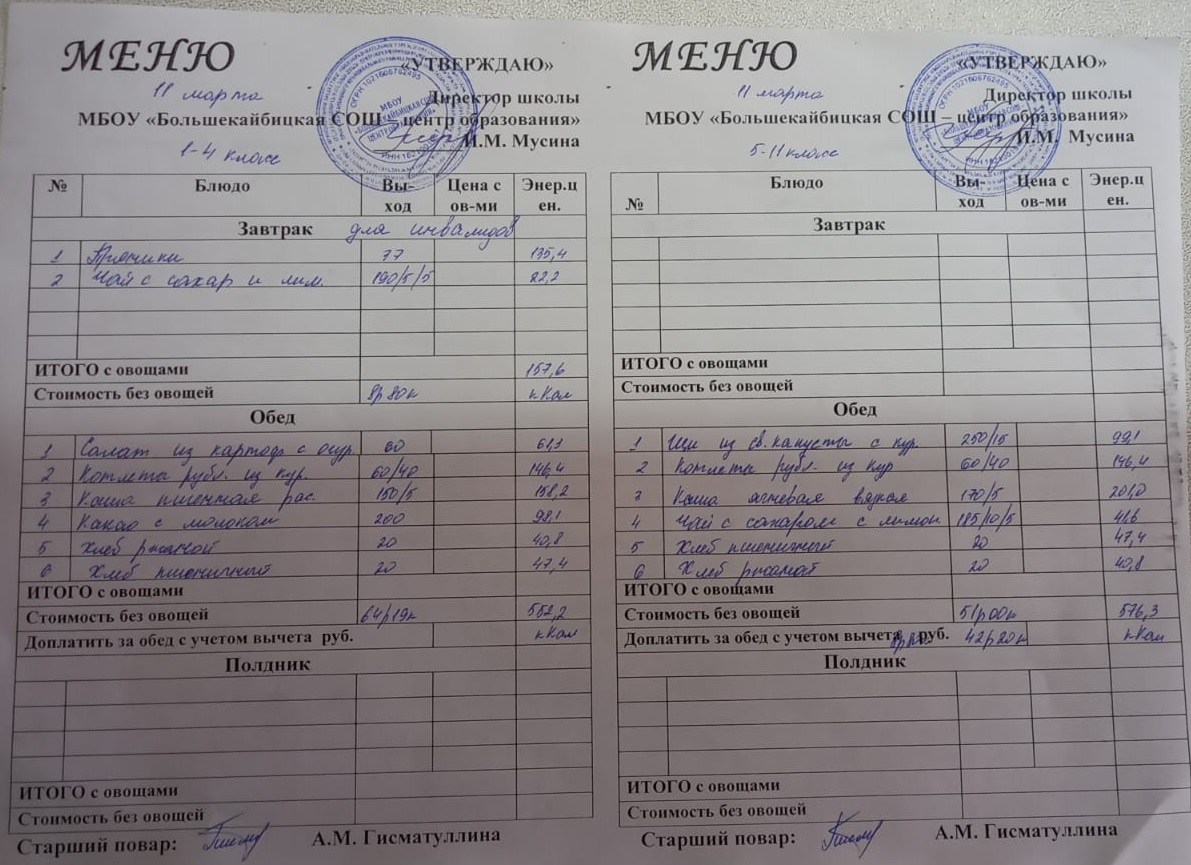 МЕНЮ
«УТВЕРЖДАЮ»
11 марта
Директор школы
МБОУ «Большекайбицкая СОШ – центр образования»
И.М. Мусина
1-4 класс
№ Блюдо Вы-ход Цена с ов-ми Энер.цен.
Завтрак для инвалидов
1 Пряники 77 135,4
2 Чай с сахар и лим. 190/5/5 22,2
ИТОГО с овощами 157,6
Стоимость без овощей 8р80к кКал
Обед
1 Салат из картоф с огур 60 61,3
2 Котлета рубл. из кур. 60/40 146,4
3 Каша пшенная рас. 150/5 158,2
4 Какао с молоком 200 98,1
5 Хлеб ржаной 20 40,8
6 Хлеб пшеничный 20 47,4
ИТОГО с овощами
Стоимость без овощей 64р19к 552,2
Доплатить за обед с учетом вычета руб. кКал
Полдник
ИТОГО с овощами
Стоимость без овощей
Старший повар: А.М. Гисматуллина
МЕНЮ
«УТВЕРЖДАЮ»
11 марта
Директор школы
МБОУ «Большекайбицкая СОШ – центр образования»
И.М. Мусина
5-11 класс
№ Блюдо Вы-ход Цена с ов-ми Энер.цен.
Завтрак
ИТОГО с овощами
Стоимость без овощей
Обед
1 Щи из св. капусты с кур. 250/15 99,1
2 Котлета рубл. из кур 60/40 146,4
3 Каша ячневая вязкая 170/5 201,0
4 Чай с сахаром с лимон 185/10/5 41,6
5 Хлеб пшеничный 20 47,4
6 Хлеб ржаной 20 40,8
ИТОГО с овощами
Стоимость без овощей 51р00к 576,3
Доплатить за обед с учетом вычета руб. 42р20к кКал
Полдник
ИТОГО с овощами
Стоимость без овощей
Старший повар: А.М. Гисматуллина